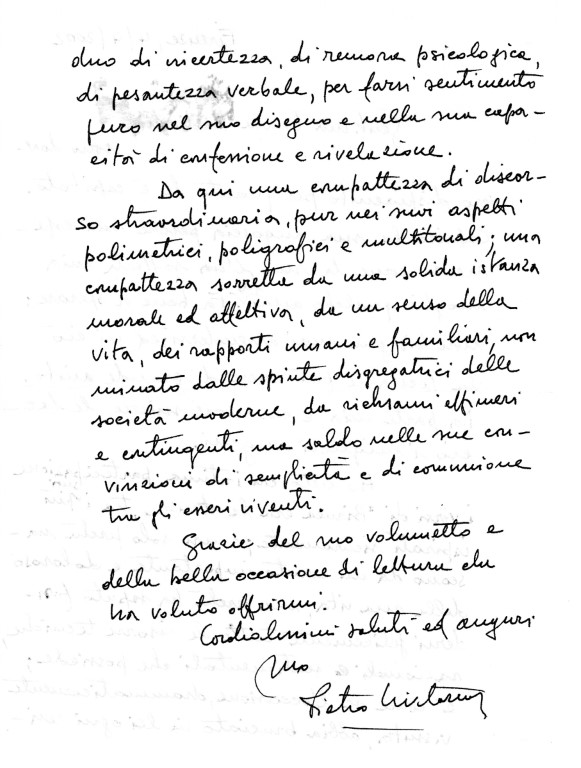 duo di incertezza, di remora psicologica,
di pesantezza verbale, per farsi sentimento
puro nel suo disegno e nella sua capa-
cità di confessione e rivelazione.
Da qui una compattezza di discor-
so straordinaria, pur nei suoi aspetti
polimetrici, poligrafici e multitonali; una
compattezza sorretta da una solida istanza
morale ed affettiva, da un senso della
vita, dei rapporti umani e familiari, non
minato dalle spinte disgregatrici delle
società moderne, da richiami effimeri
e contingenti, ma saldo nelle sue con-
vinzioni di semplicità e di comunione
tra gli esseri viventi.
Grazie del suo volumetto e
della bella occasione di lettura che
ha voluto offrirmi.
Cordialissimi saluti ed auguri
Suo
Pietro